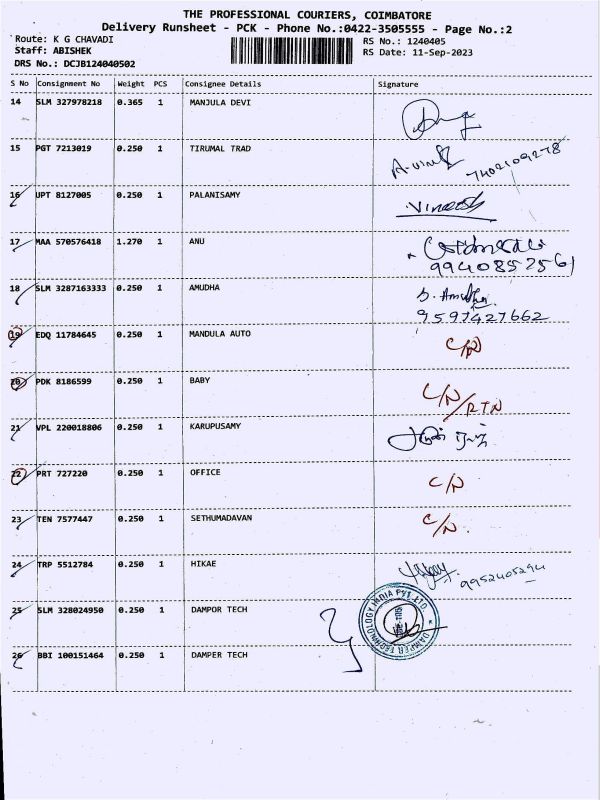 THE PROFESSIONAL COURIERS, COIMBATORE
Delivery Runsheet - PCK - Phone No.:0422-3505555 - Page No.:2
Route: K G CHAVADI
RS No.: 1240405
Staff: ABISHEK
RS Date: 11-Sep-2023
DRS No.: DCJB124040502
S No Consignment No Weight PCS Consignee Details Signature
14 SLM 327978218 0.365 1 MANJULA DEVI
15 PGT 7213019 0.250 1 TIRUMAL TRAD 7402109278
16 UPT 8127005 0.250 1 PALANISAMY
17 MAA 570576418 1.270 1 ANU
9940852561
18 SLM 3287163333 0.250 1 AMUDHA S. Amudha
9597427662
19 EDQ 11784645 0.250 1 MANDULA AUTO C/N
20 PDK 8186599 0.250 1 BABY C/N/RTN
21 VPL 220018806 0.250 1 KARUPUSAMY
22 PRT 727220 0.250 1 OFFICE C/N
23 TEN 7577447 0.250 1 SETHUMADAVAN C/N.
24 TRP 5512784 0.250 1 HIKAE 9952405294
25 SLM 328024950 0.250 1 DAMPOR TECH
DAMPER TECHNOLOGY INDIA PVT LTD
26 BBI 100151464 0.250 1 DAMPER TECH